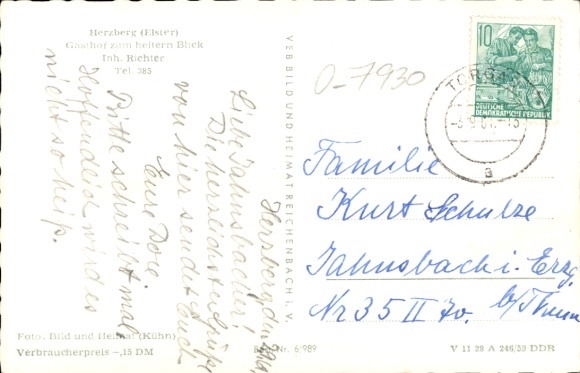 Herzberg (Elster)
Gasthof zum heitern Blick
Inh. Richter
Tel. 385
Herzberg, d.
Liebe Jahnsbacher!
Die herzlichsten Grüße
von hier sendet Euch
Eure Dora
Bitte schreibt mal
Hoffendlich wird es
nicht so heiß.
VEB BILD UND HEIMAT REICHENBACH i. V.
0-7930
10
DEUTSCHE
DEMOKRATISCHE REPUBLIK
TORGAU
a
Familie
Kurt Schulze
Jahnsbach i. Erzg.
Nr 35 II 70. b/Thum
Foto: Bild und Heimat (Kühn)
Verbraucherpreis –,15 DM
Nr. 6/989
V 11 28 A 246/59 DDR